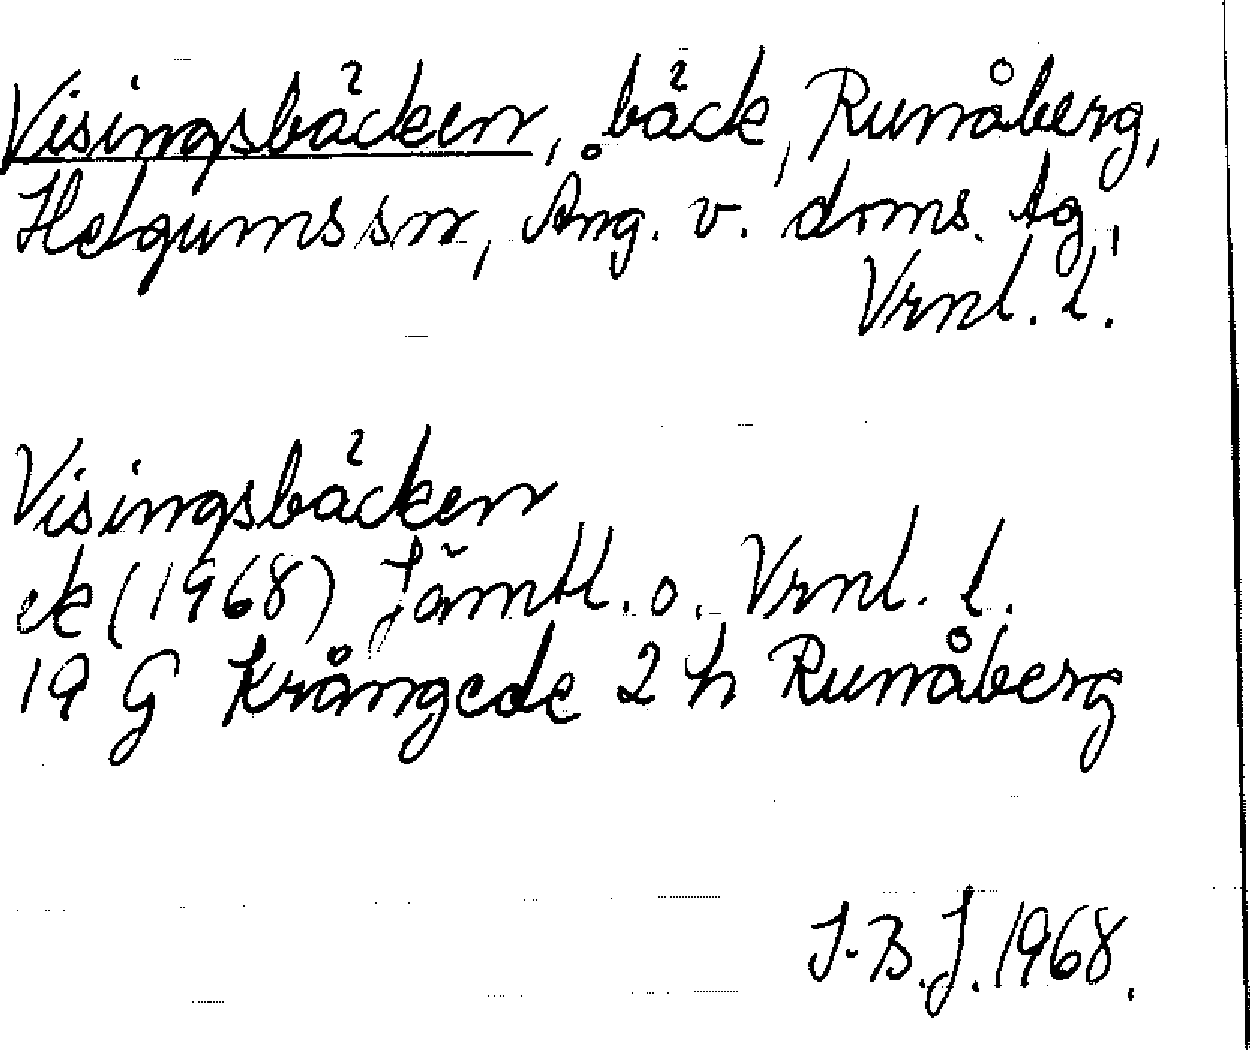 Visingsbäcken, bäck, Runåberg,
Helgums sn, Ång. v. doms. tg,
Vrnl. l.
Visingsbäcken
ek (1968) Jämtl. o. Vrnl. l.
19 G Krångede 2 h Runåberg
J.B.J. 1968.